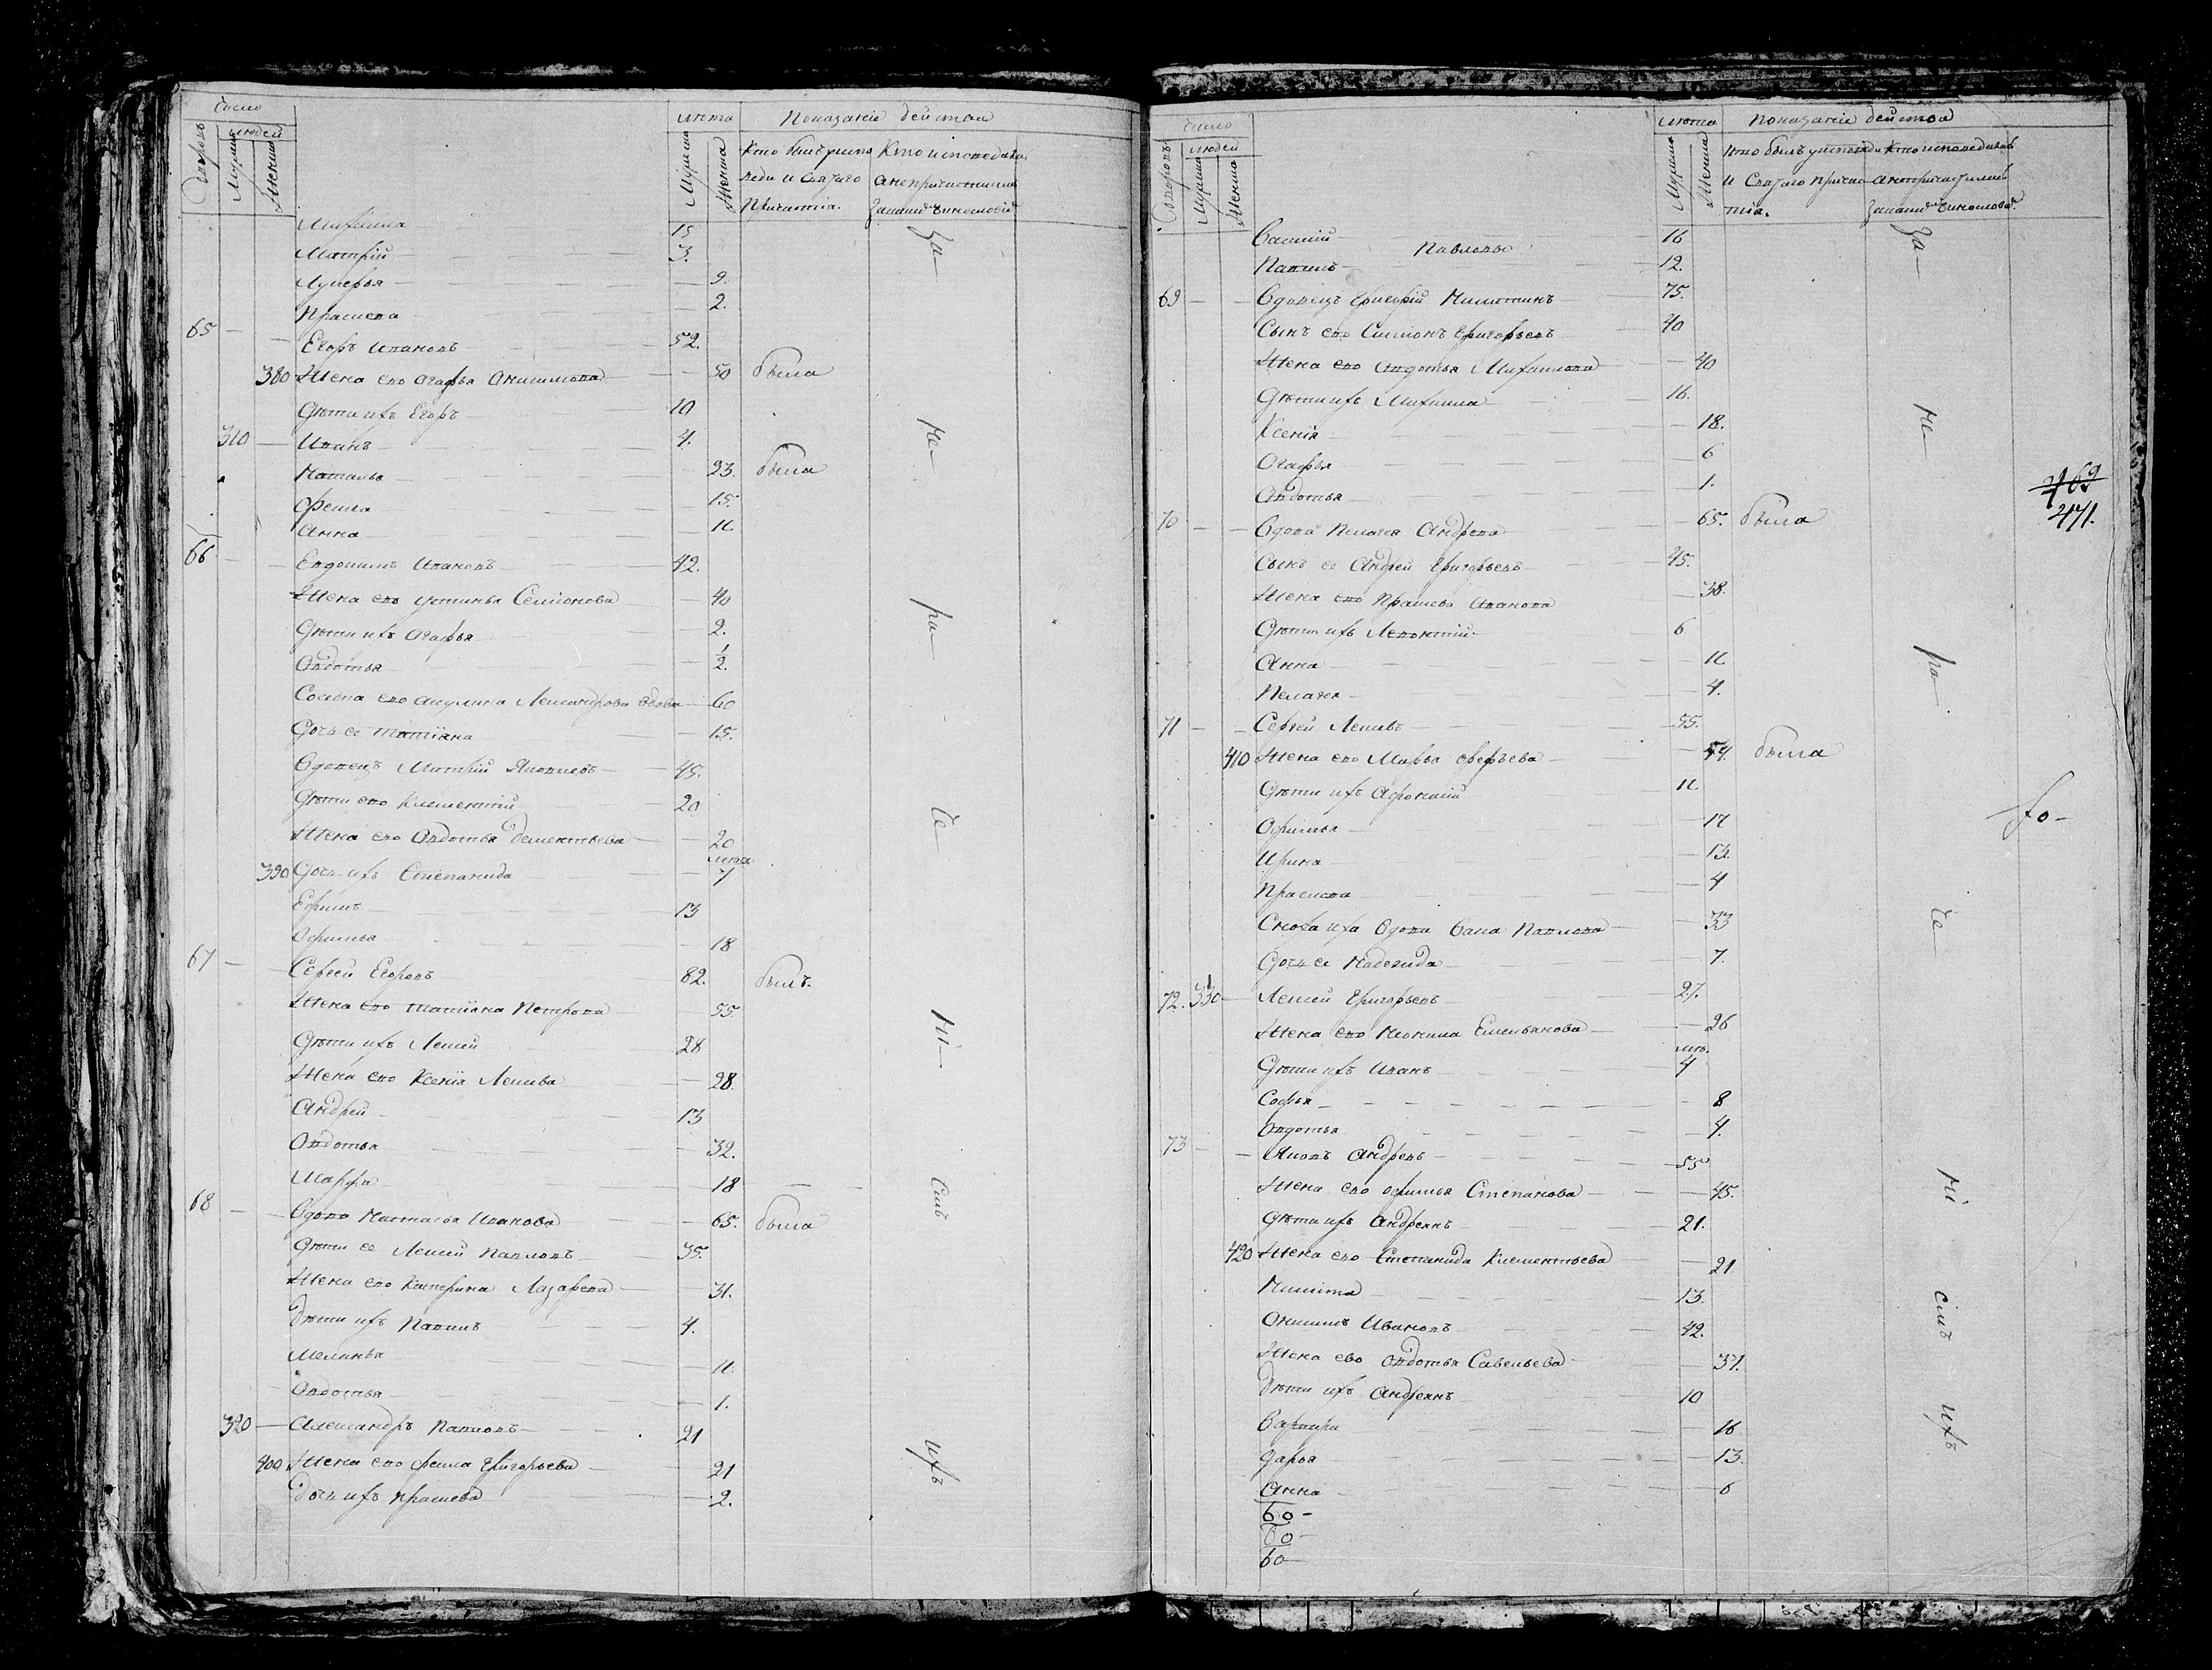 число лѣта Показаніе действа
людей
Дворовъ Мужеска Женска Мужеска Женска Кто былъ у испо Кто исповедался
веди и Святаго а не причастился
Причастія.
Михаила 15
Матвій 3.
Лукерья 9.
Праскева 2.
65 Егоръ Ивановъ 52.
380 Жена ево Огафья Онисимова 50 была
Дѣти ихъ Егоръ 10
310 Иванъ 4.
Наталья 23. была
Фекла 15.
Анна 11.
66 Евдокимъ Ивановъ 42.
Жена ево Устинья Семіонова 40
Дѣти ихъ Огафья 2.
Овдотья 1/2.
ево Акулина вдова 60
Дочь ее Татіяна 15.
Вдовецъ Матвій Яковлевъ 45.
Дѣти ево Клементій 20
Жена ево Овдотья Дементьева 20
390 Дочь ихъ Степанида
Ефимъ 13
Офимья 18
67 Сергей Егоровъ 82. былъ.
Жена ево Татіана Петрова 55.
Дѣти ихъ Лексей 28
Жена ево Ксенія Лексева 28.
Андрей 13
Овдотья 32.
Марфа 18
68 Вдова Наталья Иванова 65. была
Дѣти ее Лексей Павловъ 35.
Жена ево Катерина Лазарева 31.
Дѣти ихъ Павилъ 4.
Меланья 11.
Овдотья 1.
320 Александръ Павловъ 21
400 Жена ево Фекла Григорьева 21
Дочь ихъ Праскева 2.
За не ра че ні емъ ихъ
число лѣта Показаніе действа
людей
Дворовъ Мужеска Женска Мужеска Женска Кто былъ у исповеди Кто исповедался
и Святаго Причас а не причастился
тія.
Василій 16
Павловы
Павилъ 12.
69 Вдовецъ Григорій Никитинъ 75.
Сынъ ево Симіонъ Григорьевъ 40
Жена ево Овдотья Михаилова 40
Дѣти ихъ Михаила 16.
Ксенія 18.
Огафья 6
Овдотья 1.
70 Вдова Пелагея Андрева 65. была
Сынъ ее Андрей Григорьевъ 45.
Жена ево Праскева Иванова 38.
Дѣти ихъ Левонтій 6
Анна 11.
Пелагея 4.
71 Сергей Лексевъ 55.
410 Жена ево Марья 54. была
Дѣти ихъ Афонасій 11.
Офимья 17
Ирина 13.
Праскева 4
Сноха ихъ Вдова Павлова 33
Дочь ее Надежида 7.
72. 330 Лексей Григорьевъ 27.
Жена ево Неонила Емельянова 26
Дѣти ихъ Иванъ 4
Софья 8
Овдотья 4.
73 Яковъ Андревъ 55
Жена ево Офимья Степанова 45.
Дѣти ихъ Андреянъ 21.
420 Жена ево Степанида Клементьева 21
Никита 13.
Онисимъ Ивановъ 42.
Жена ево Овдотья Савельева 37.
Дѣти ихъ Андреянъ 10
Варвара 16
Дарья 13.
Анна 6
60-
60-
60-
За не ра че ні емъ ихъ
469
471.